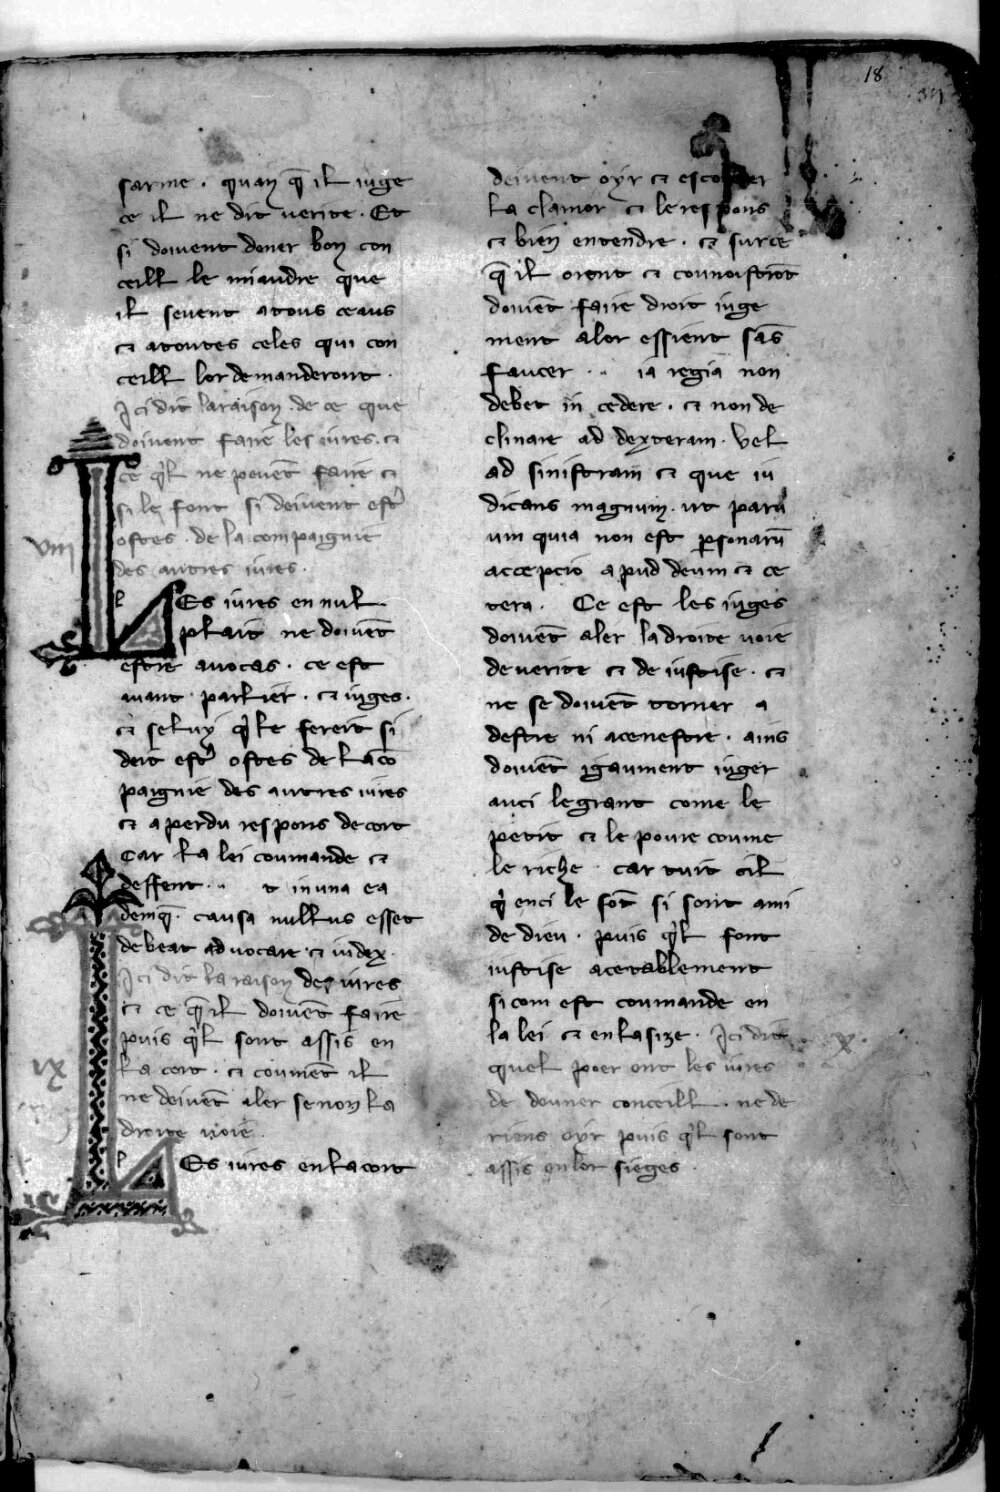 18
sarme . quan q̄ il iuge
ce il ne dit uerite . Et
si doiuent doner bon con
ceill le miaudre que
il seuent atous ceaus
⁊ atoutes celes qui con
ceill lor demanderont .
Ici dit la raison . de ce que
doiuent faire les iures . ⁊
ce q̓l ne peuēt faire ⁊
si le font si deiuent estr̓
ostes . de la compaignie
des autres iures .
viii
LEs iures en nul
plait ne doiuēt
estre auocas . ce est
auant parlier . ⁊ iuges .
⁊ seluy q̓ le fereit si
deit estr̓ ostes de la cō
paignie des autres iures
⁊ a perdu respons de cort
Car la lei coumande ⁊
deffent . t in una ea
demq̄ . causa nullus esset
debeat aduocare . ⁊ iudex .
Ici dit la raison des iures
⁊ ce q̄ il doiuēt faire
puis q̓l sont assis en
la cort . ⁊ coumēt il
ne deiuēt aler se non la
droite uoie .
ix
LEs iures en la cort
deiuent oyr ⁊ escouter
la clamor ⁊ le respons
⁊ bien entendre . ⁊ sur ce
q̄ il oient ⁊ connoistrōt
doiuēt faire droit iuge
ment a lor essient sās
faucer . ia regia non
debet in cedere . ⁊ non de
clinare ad dexteram . vel
ad sinistram ⁊ que iu
dicans magnum . ut paru
um quia non est ꝑsonarū
accepcio apud deum ⁊ ce
tera . Ce est les iuges
doiuēt aler la droite uoie
de uerite ⁊ de iustise . ⁊
ne se doiuēt torner a
destre ni a cenestre . ains
doiuēt igaument iuger
auci le grant come le
petit ⁊ le poure coume
le riche . car tuit cil
q̓ enci le fōt si sont ami
de dieu . puis q̓l font
iustise acetablement
si com est coumande en
la lei ⁊ en lasize . Ici dit
x
quel poer ont les iures
de douner conceill . ne de
riens oyr puis q̓l sont
assis en lor sieges .